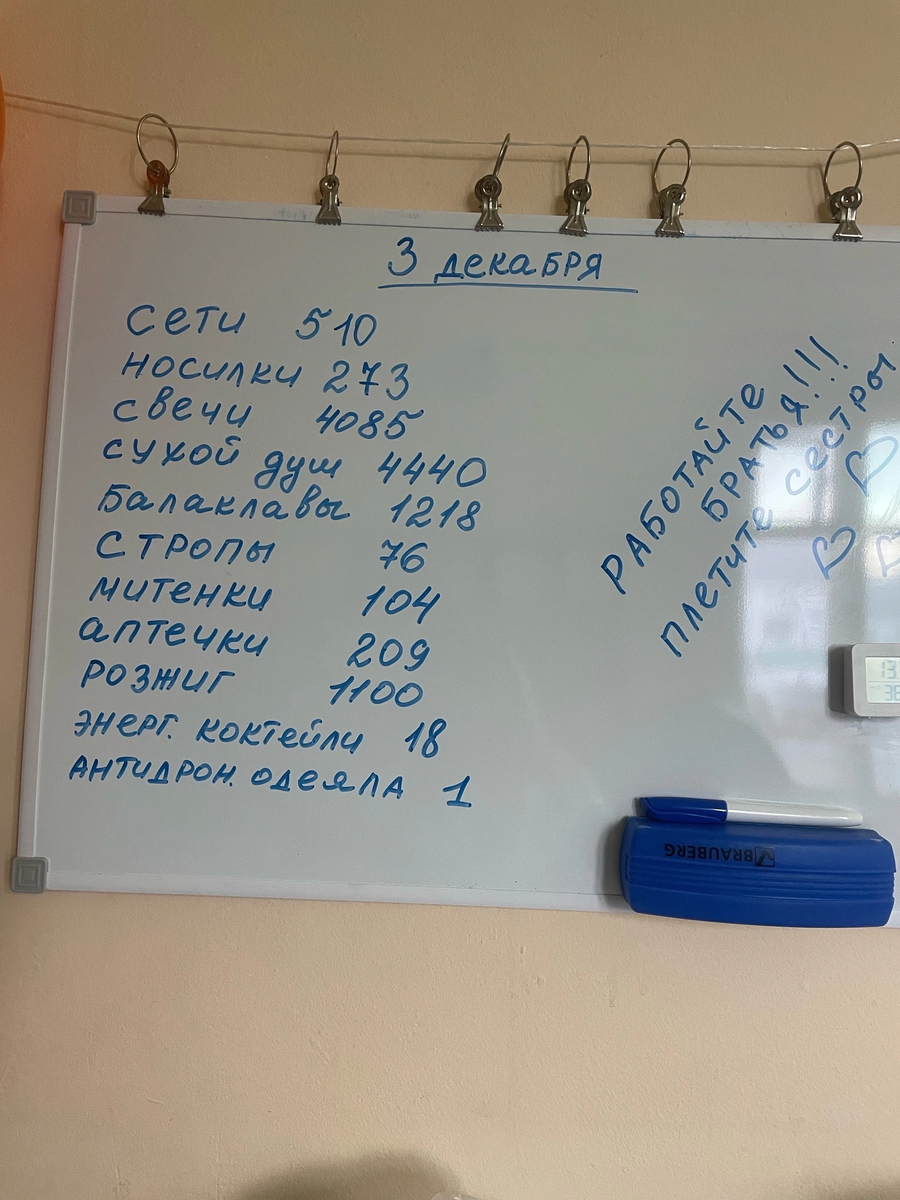 3 декабря
сети 510
носилки 273
свечи 4085
сухой душ 4440
Балаклавы 1218
стропы 76
митенки 104
аптечки 209
розжиг 1100
энерг. коктейли 18
антидрон. одеяла 1
РАБОТАЙТЕ
БРАТЬЯ!!!
плетите сестры
BRAUBERG